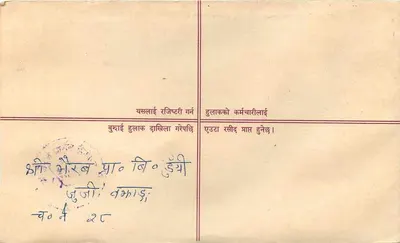 यसलाई रजिष्टरी गर्न हुलाकको कर्मचारीलाई
बुझाई हुलाक दाखिला गरेपछि एउटा रसीद प्राप्त हुनेछ।
श्री भैरब प्रा० बि० डुँग्री
जुजी, बझाङ्ग
च० नं २८